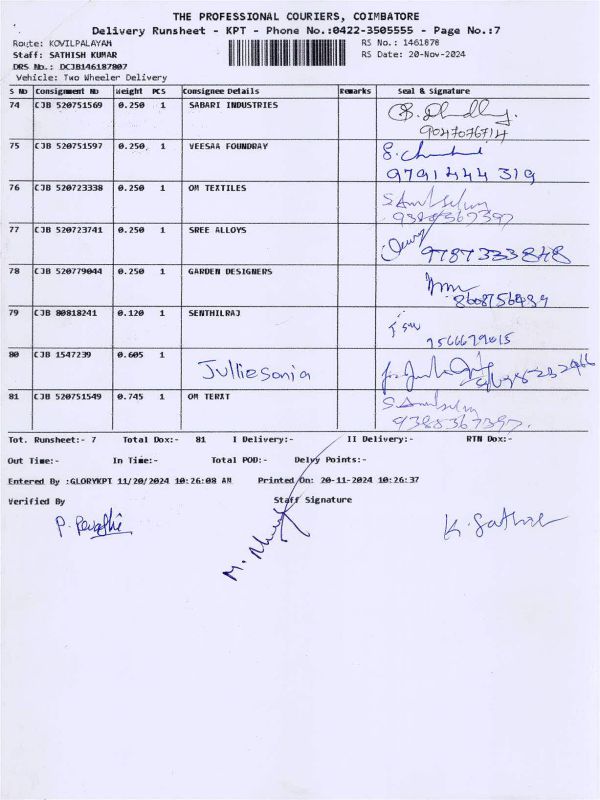 THE PROFESSIONAL COURIERS, COIMBATORE
Delivery Runsheet - KPT - Phone No.:0422-3505555 - Page No.:7
Route: KOVILPALAYAM RS No.: 1461878
Staff: SATHISH KUMAR RS Date: 20-Nov-2024
DRS No.: DCJB146187807
Vehicle: Two Wheeler Delivery
S No Consignment No Weight PCS Consignee Details Remarks Seal & Signature
74 CJB 520751569 0.250 1 SABARI INDUSTRIES
9047076714
75 CJB 520751597 0.250 1 VEESAA FOUNDRAY
9791444319
76 CJB 520723338 0.250 1 OM TEXTILES
77 CJB 520723741 0.250 1 SREE ALLOYS
9787333848
78 CJB 520779044 0.250 1 GARDEN DESIGNERS
79 CJB 80818241 0.120 1 SENTHILRAJ
80 CJB 1547239 0.605 1 Julliesonia
81 CJB 520751549 0.745 1 OM TERXT
9385367397.
Tot. Runsheet:- 7 Total Dox:- 81 I Delivery:- II Delivery:- RTN Dox:-
Out Time:- In Time:- Total POD:- Delvy Points:-
Entered By :GLORYKPT 11/20/2024 10:26:08 AM Printed On: 20-11-2024 10:26:37
Verified By Staff Signature